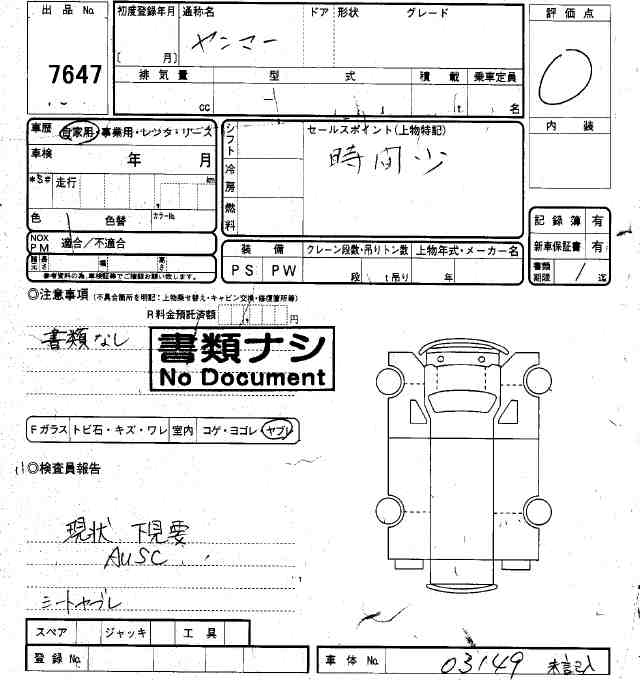 出品No. 初度登録年月 通称名 ドア 形状 グレード 評価点
7647 ヤンマー
[ 月]
排気量 型式 積載 乗車定員
cc (t) 名
内装
車歴 自家用・事業用・レンタ・リース
車検 年 月
*S# 走行 km
色 色替 カラーNo.
NOX PM 適合／不適合
諸元 長さ 幅 高さ
参考資料の為、車検証等でご確認お願い致します。
シフト
冷房
燃料
セールスポイント(上物特記)
時間少
装備 クレーン段数・吊りトン数 上物年式・メーカー名
PS PW 段 t吊り 年
記録簿 有
新車保証書 有
書類期限 / 迄
◎注意事項 (不具合箇所を明記：上物乗せ替え・キャビン交換・修復箇所等)
R料金預託済額 円
書類なし
書類ナシ
No Document
Fガラス トビ石・キズ・ワレ 室内 コゲ・ヨゴレ・ヤブレ
◎検査員報告
現状 下見要
AUSC
シートヤブレ
スペア ジャッキ 工具
登録No.
車体No. 03149 未記入